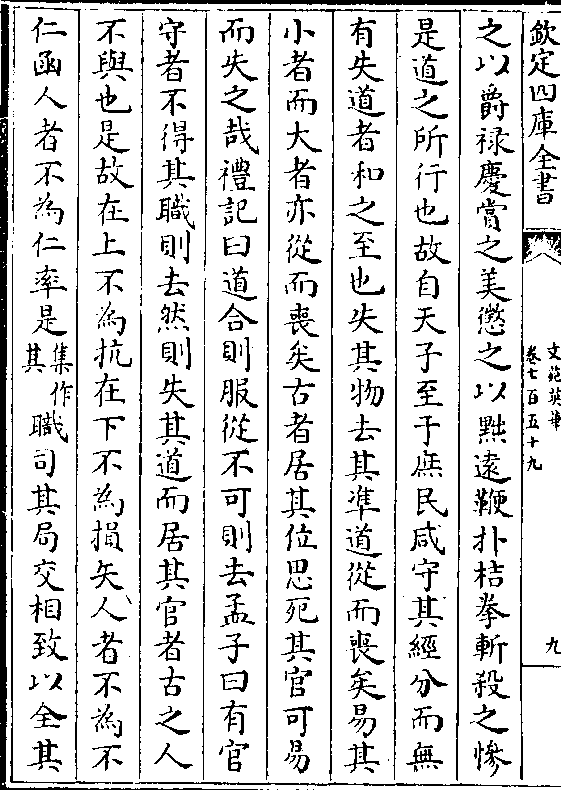 欽定四庫全書
文苑英華
卷七百五十九
九
之以爵禄慶賞之美懲之以黜遠鞭扑梏拳斬殺之慘
是道之所行也故自天子至于庶民咸守其經分而無
有失道者和之至也失其物去其凖道從而喪矣易其
小者而大者亦從而喪矣古者居其位思死其官可易
而失之哉禮記曰道合則服從不可則去孟子曰有官
守者不得其職則去然則失其道而居其官者古之人
不與也是故在上不為抗在下不為損矢人者不為不
仁函人者不為仁率是集作其職司其局交相致以全其